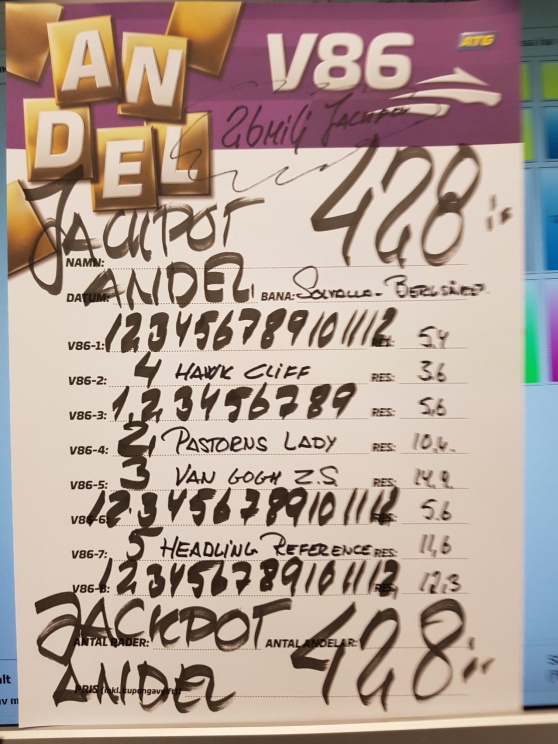 ANDEL
V86
ATG
26 Milj Jackpot
JACKPOT 428:-
NAMN:
ANDEL
DATUM: BANA: Solvalla - Bergsåker
V86-1: 1 2 3 4 5 6 7 8 9 10 11 12 RES: 5,4
V86-2: 4 HAWK CLIFF RES: 3,6
V86-3: 1, 2 3 4 5 6 7 8 9 RES: 5,6
V86-4: 2, PASTORNS LADY RES: 10,4
V86-5: 3 VAN GOGH Z.S. RES: 14,9
V86-6: 1 2 3 4 5 6 7 8 9 10 11 12 RES: 5.6
V86-7: 5 HEADLING REFERENCE RES: 11,6
V86-8: 1 2 3 4 5 6 7 8 9 10 11 12 RES: 12,3
JACKPOT 428:-
ANTAL RADER: ANTAL ANDELAR:
ANDEL
PRIS (inkl. kupongavgift):